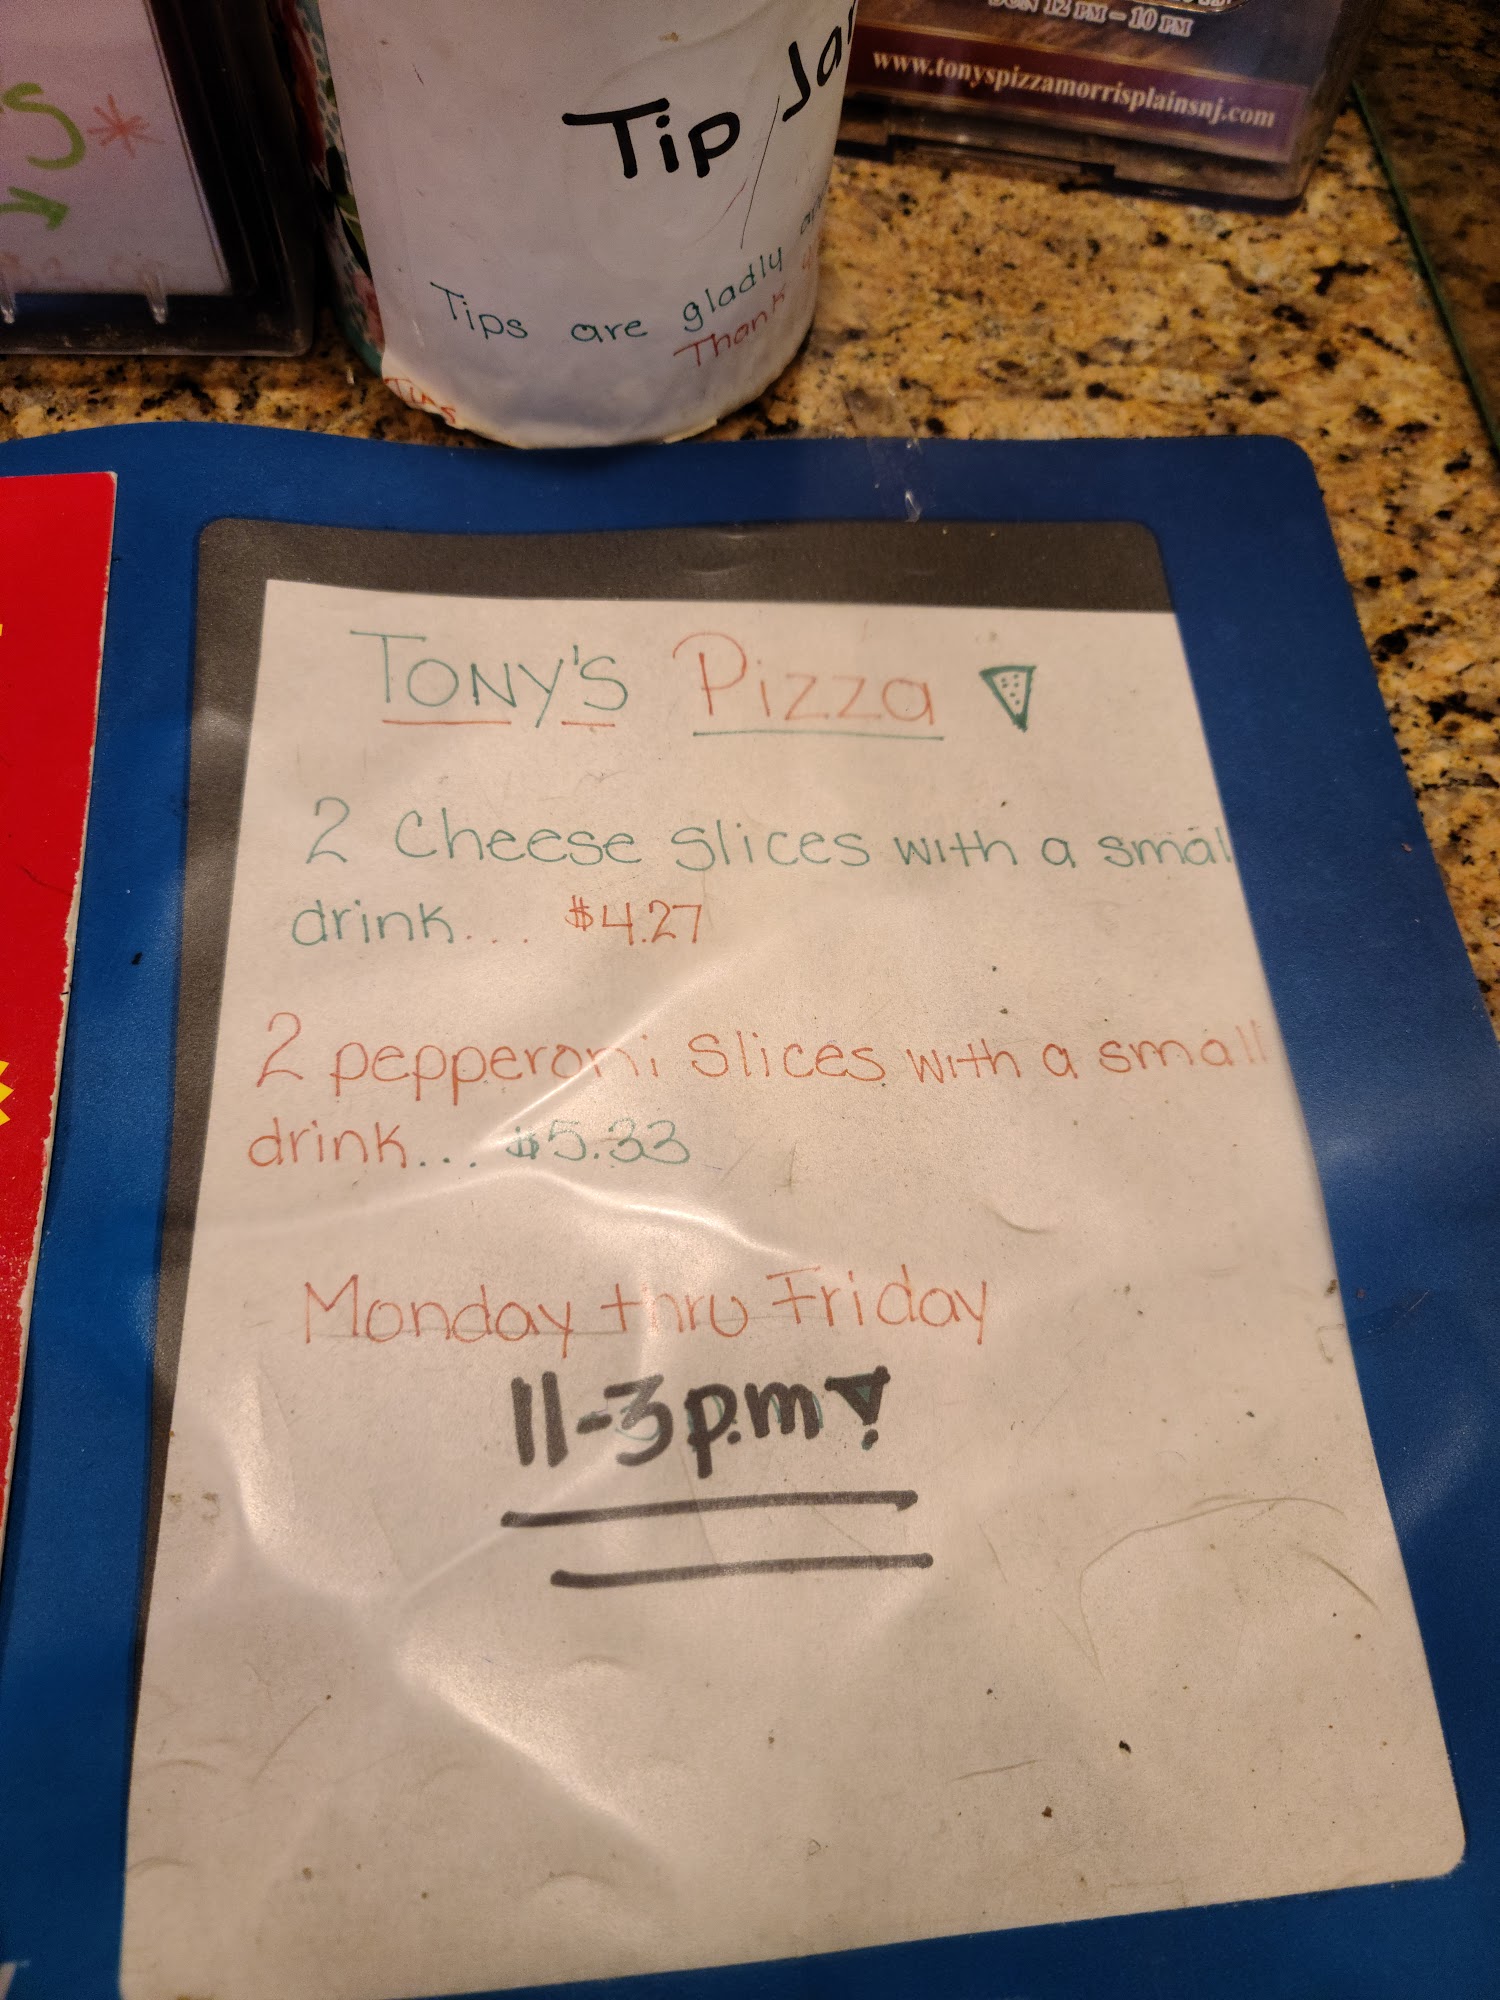 SUN 12 PM – 10 PM
www.tonyspizzamorrisplainsnj.com
Tip Jar
Tips are gladly
Thank
Tips
TONY'S Pizza
2 Cheese slices with a small
drink... $4.27
2 pepperoni slices with a small
drink... $5.33
Monday thru Friday
11-3p.m!